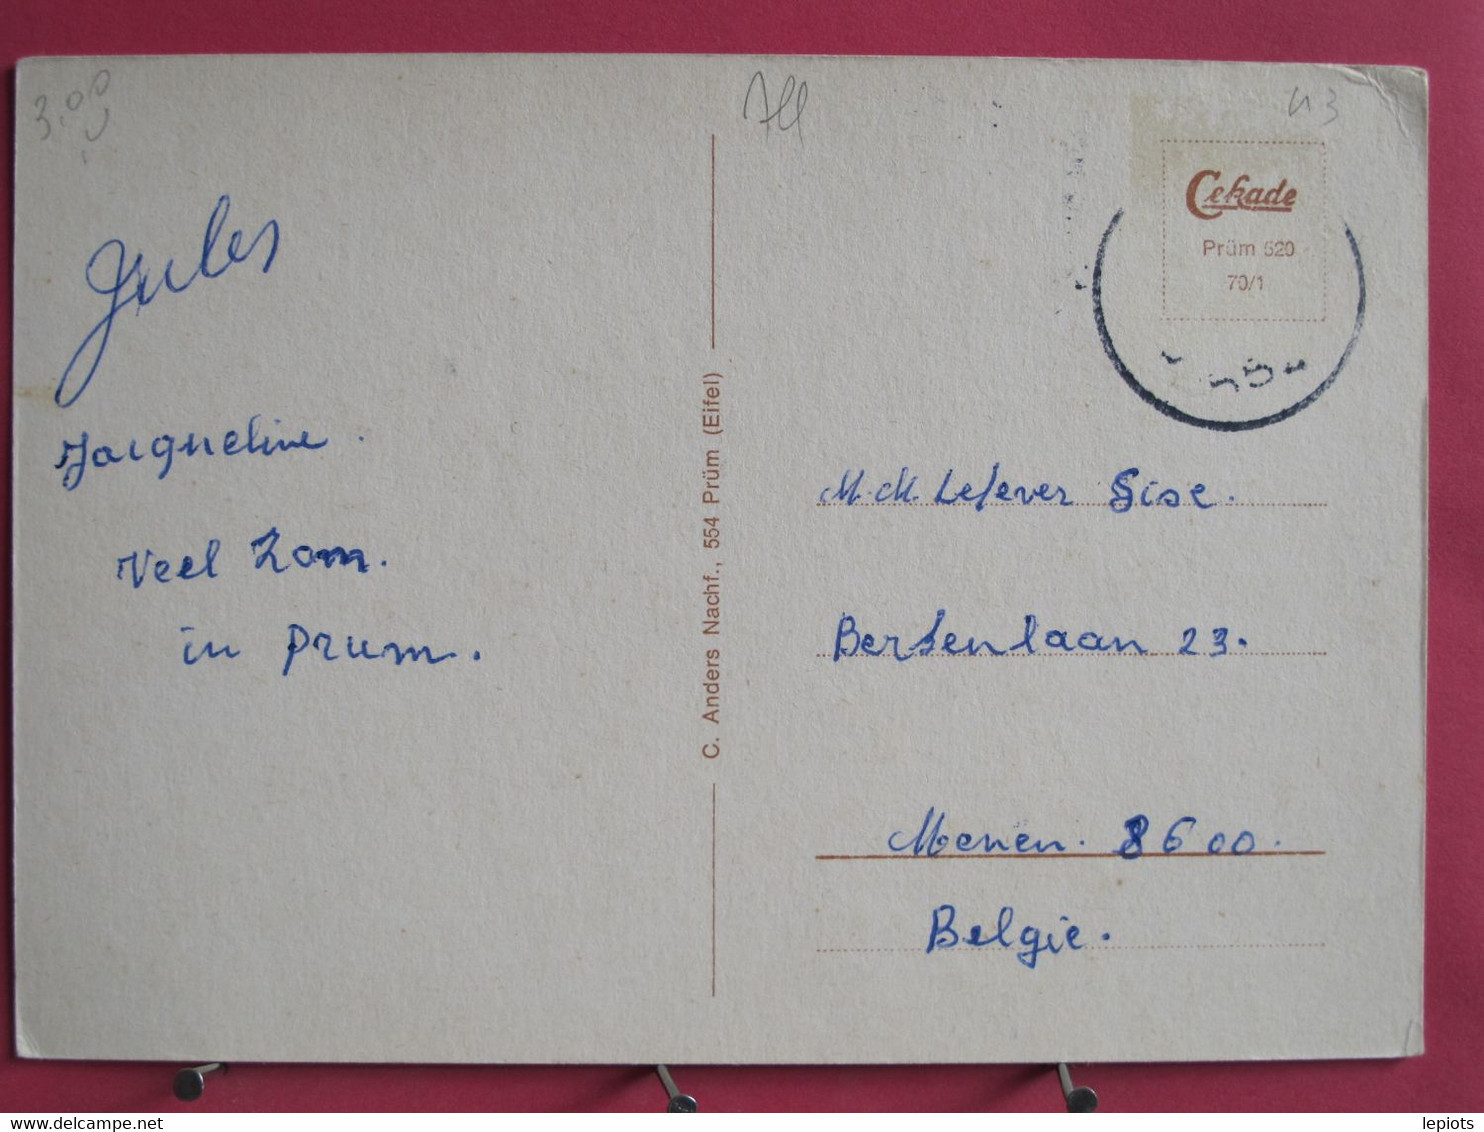 3.00
All
43
Jules
Jacqueline.
Veel zom.
in prum.
C. Anders Nachf., 554 Prüm (Eifel)
Cekade
Prüm 520
70/1
M.M. Lefever Sise.
Bertenlaan 23.
Menen. 8600.
Belgie.
www.delcampe.net
lepiots